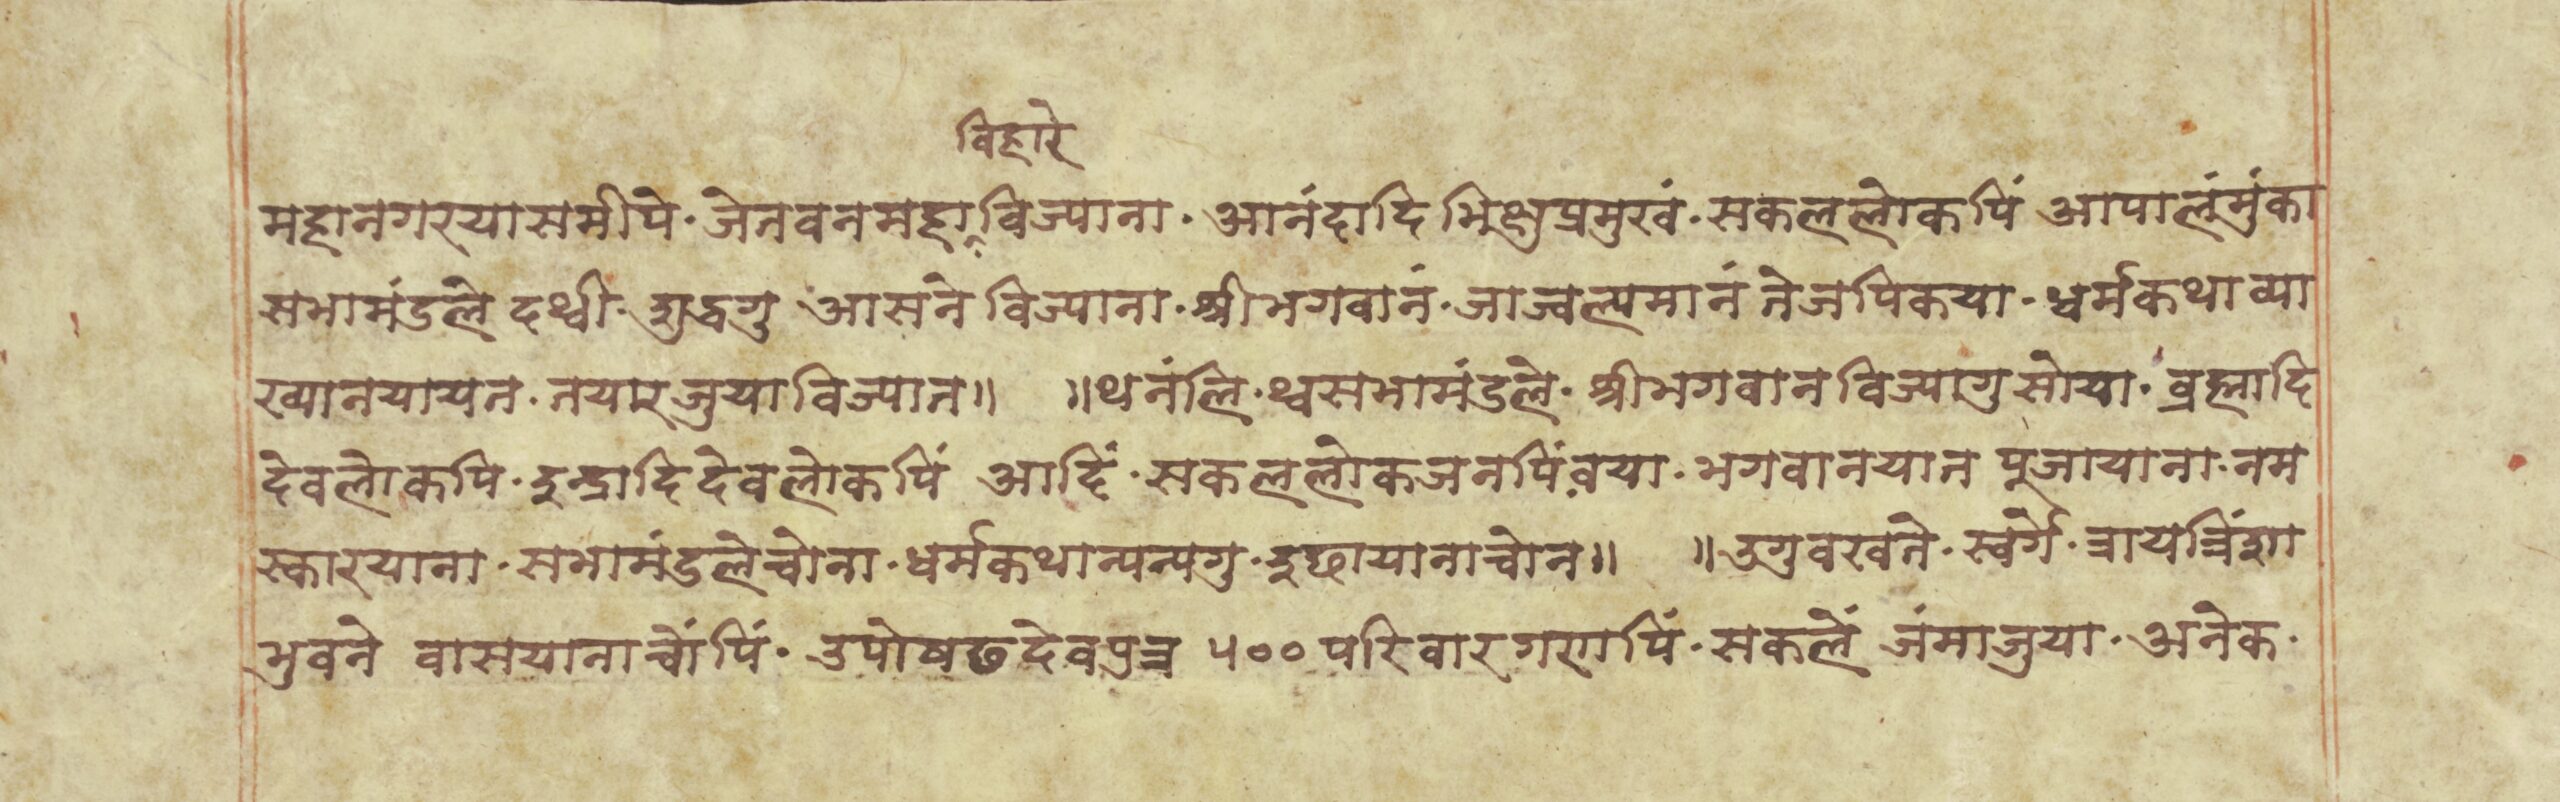 विहारे
महानगरयासमीपे·जेतवनमहाविज्याना·आनंदादिभिक्षुप्रमुखं·सकललोकपिं आपालंमुंका
सभामंडले दथ्वी·शुद्धगु आसने विज्याना·श्रीभगवानं·जाज्वल्यमानं तेजपिकया·धर्मकथाव्या
ख्यानयायत·तयारजुयाविज्यात॥ ॥थनंलि·थ्वसभामंडले·श्रीभगवानविज्यागुसोया·ब्रह्मादि
देवलोकपि·इन्द्रादिदेवलोकपिं आदिं·सकललोकजनपिंवया·भगवानयात पूजायाना·नम
स्कारयाना·सभामंडलेच्वोना·धर्मकथान्यन्यगु·इछायानाच्वोन॥ ॥उगुवखते·स्वर्गे·त्रायत्रिंशा
भुवने वासयानाच्वोंपिं·उपोषढदेवपुत्र ५००परिवारगणपिं·सकलें जंमाजुया·अनेक·